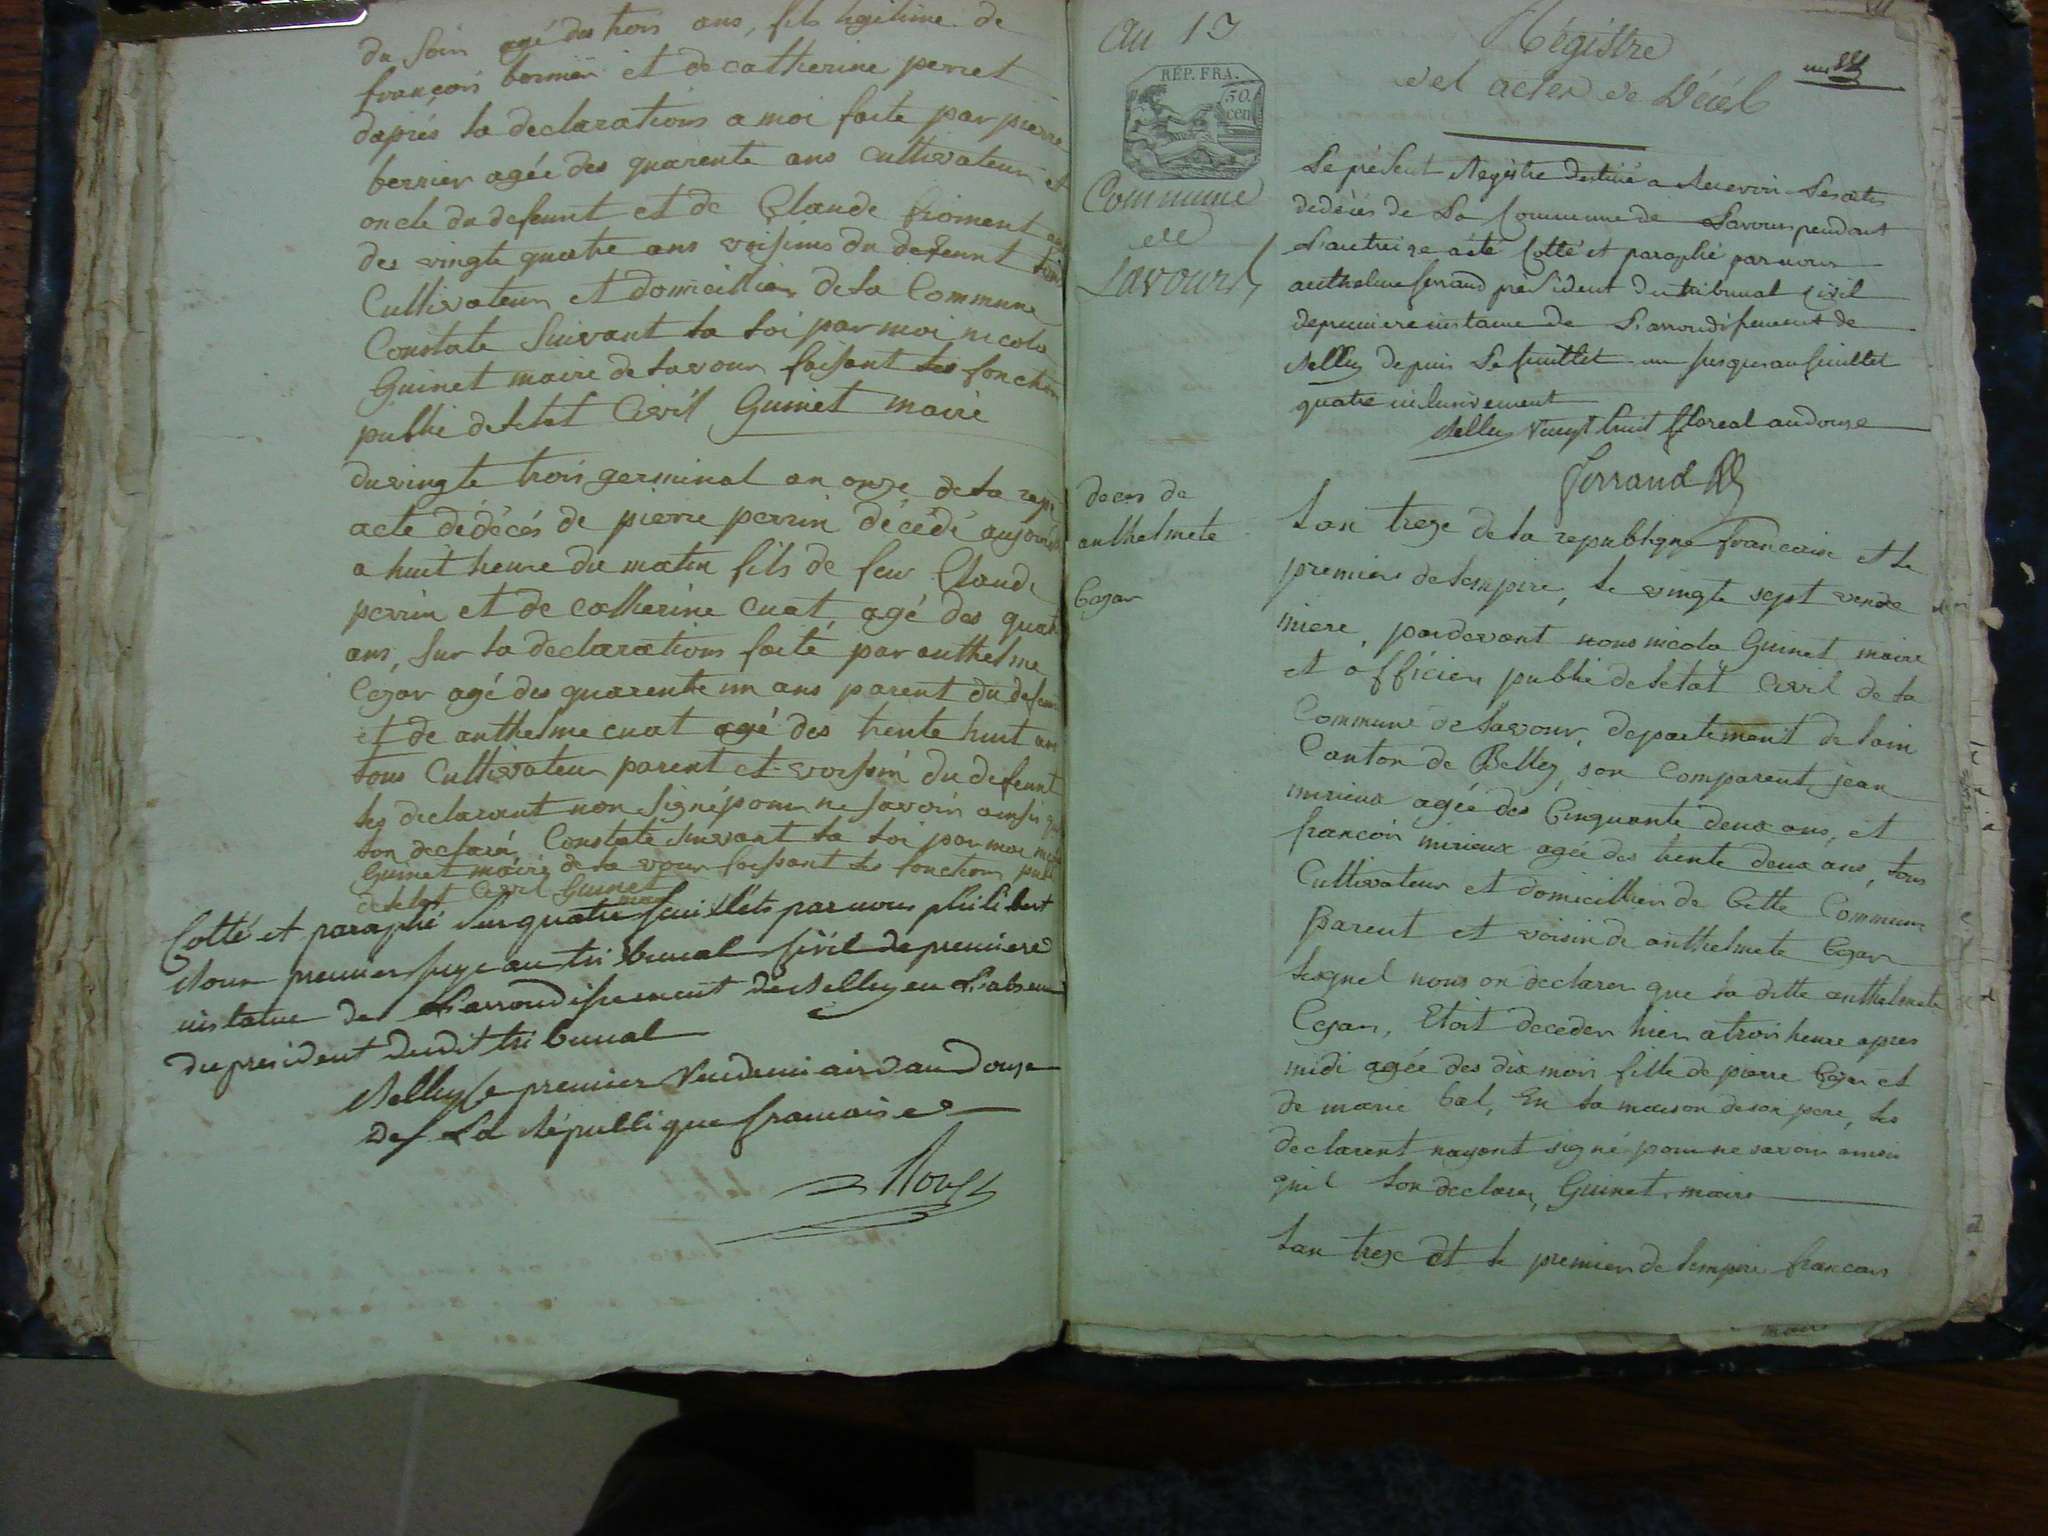 du soir agé des trois ans, fils legitime de
françois berrier et de catherine perret
daprés la declarations a moi faite par pierre
berrier agée des quarente ans cultivateur et
oncle du defeunt et de Claude froment
des vingte quatre ans voisins du defeunt
Cultivateur et domicillier de la Commune
Constate Suivant la loi par moi nicola
Guinet maire de lavour faisant les fonction
publie de letat Civil Guinet maire
du vingte trois germinal an onze de la rep
acte de décés de pierre perrin décédé aujour
a huit heure du matin fils de feu Claude
perrin et de catherine cuat agé des quat
ans, sur la declarations faite par anthelme
Cezar agé des quarente un ans parent du defeun
et de anthelme cuat agé des trente huit an
tous Cultivateur parent et voissin du defeunt
les declarant non signé pour ne savoir ainsi
lon declaré, Constate suivant la loi par moi
Guinet maire de la vour faisant les fonction
de letat Civil Guinet maire
Cotté et paraphé sur quatre feuillets par nous philibert
Roux premier juge au tribunal Civil de premiere
instance de L'arrondissement de Belley en L'absence
du president dudit tribunal
Belley le premier Vendemiaire an Douze
de La République francaise
Roux
An 13
Régistre
des actes de Décés
un
RÉP. FRA.
50
cen
Commune
de
Lavours
Le présent Registre destiné a Recevoir Les actes
de décés de La Commune de Lavour pendant
L'an treize a été Cotté et paraphé par nous
anthelme ferrand president du tribunal Civil
de premiere instance de L'arrondissement de
Belley depuis Le feuillet un jusques au feuillet
quatre inclusivement
Belley Vingt huit floreal an douze
Ferrand
deces de
anthelmete
Cezar
Lan treze de la republique francaise et le
premiere de lempire, le vingte sept vende
miere, pardevant nous nicola Guinet maire
et officier publie de letat Civil de la
Commune de lavour, departement de lain
Canton de Belley, son Comparent jean
mirieux agée des Cinquante deux ans, et
francoir mirieux agée des trente deux ans, tous
Cultivateur et domicillier de Cette Commune
Parent et voisin de anthelmete Cezar
lesquel nous on declarer que la ditte anthelmete
Cezar, Etoit deceder hier a troir heure apres
midi agée des dix moir fille de pierre Cezar et
de marie bal, En la maison de son pere, les
declarent nayant signé pour ne savoir ainsi
quil lon declarer, Guinet maire
Lan treze et le premier de lempire francais
maire